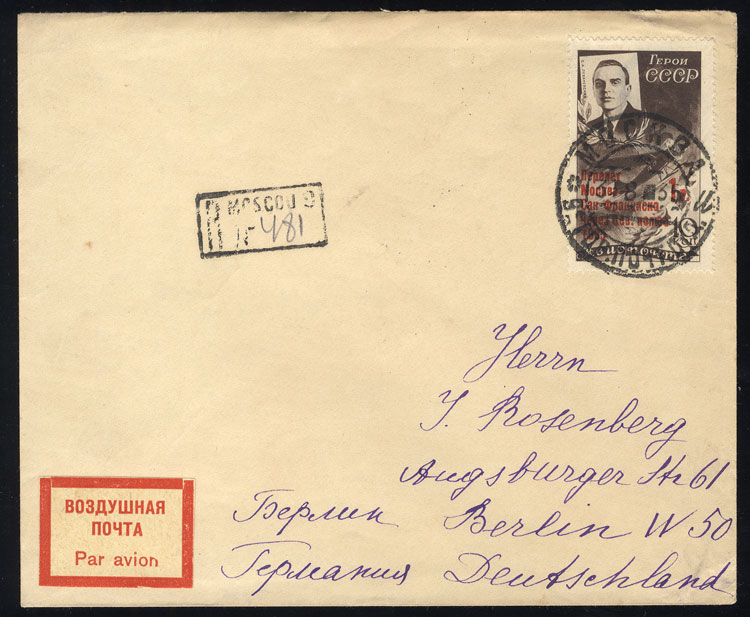 ГЕРОИ
СССР
МОСКВА
Перелет
Москва
Сан-Франциско
1р.
10
MOSCOU 9
R
№ 481
Herrn
J. Rosenberg
Augsburger Str 61
Берлин Berlin W 50
Германия Deutschland
ВОЗДУШНАЯ
ПОЧТА
Par avion